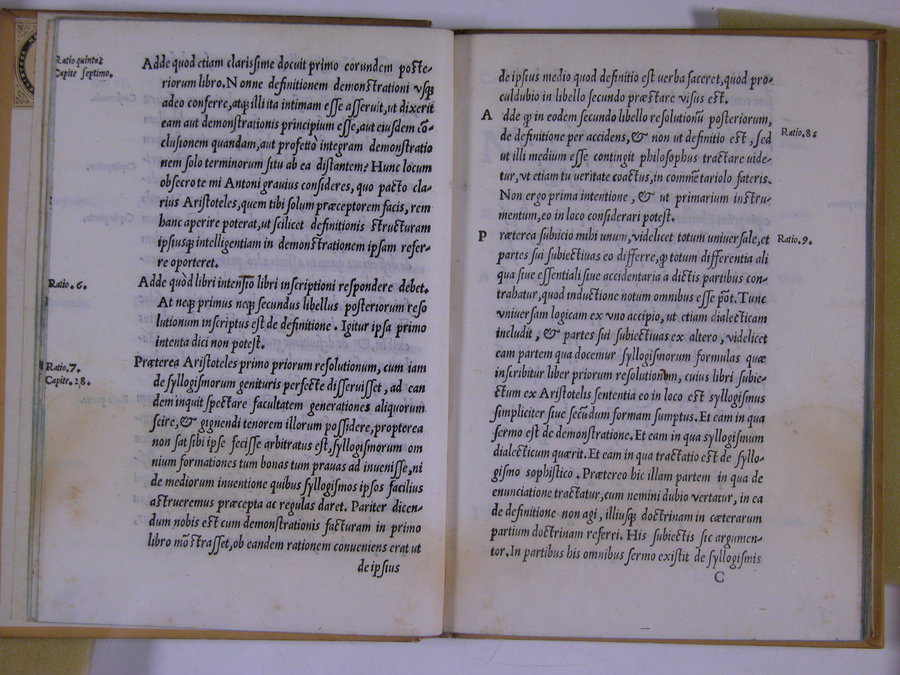 Ratio quinta
Capite septimo.
Adde quod etiam clarissime docuit primo eorundem poste-
riorum libro. Nonne definitionem demonstrationi vsq;
adeo conferre, atq; illi ita intimam esse asseruit, ut dixerit
eam aut demonstrationis principium esse, aut eiusdem cō-
clusionem quandam, aut profecto integram demonstratio
nem solo terminorum situ ab ea distantem? Hunc locum
obsecro te mi Antoni grauius consideres, quo pacto cla-
rius Aristoteles, quem tibi solum præceptorem facis, rem
hanc aperire poterat, ut scilicet definitionis structuram
ipsiusq; intelligentiam in demonstrationem ipsam refer-
re oporteret.
Ratio. 6.
Adde quòd libri intentio libri inscriptioni respondere debet.
At neq; primus neq; secundus libellus posteriorum reso
lutionum inscriptus est de definitione. Igitur ipsa primo
intenta dici non potest.
Ratio. 7.
Capite. 28.
Præterea Aristoteles primo priorum resolutionum, cum iam
de syllogismorum genituris perfecte disseruisset, ad ean
dem inquit spectare facultatem generationes aliquorum
scire, & gignendi tenorem illorum possidere, propterea
non sat sibi ipse fecisse arbitratus est, syllogismorum om
nium formationes tum bonas tum prauas ad inuenisse, ni
de mediorum inuentione quibus syllogismos ipsos facilius
astrueremus præcepta ac regulas daret. Pariter dicen-
dum nobis est cum demonstrationis facturam in primo
libro mōstrasset, ob eandem rationem conueniens erat ut
de ipsius
de ipsius medio quod definitio est uerba faceret, quod pro-
culdubio in libello secundo præstare visus est.
A dde q̄ in eodem secundo libello resolutionū posteriorum,
Ratio. 8.
de definitione per accidens, & non ut definitio est, sed
ut illi medium esse contingit philosophus tractare uide-
tur, vt etiam tu ueritate coactus, in commētariolo fateris.
Non ergo prima intentione, & ut primarium instru-
mentum, eo in loco considerari potest.
P ræterea subiicio mihi unum, videlicet totum uniuersale, et
Ratio. 9.
partes sui subiectiuas eo differre, q̄ totum differentia ali
qua siue essentiali siue accidentaria a dictis partibus con-
trahatur, quod inductione notum omnibus esse pōt. Tunc
vniuersam logicam ex vno accipio, ut etiam dialecticam
includit, & partes sui subiectiuas ex altero, videlicet
eam partem qua docemur syllogismorum formulas quæ
inscribitur liber priorum resolutionum, cuius libri subie-
ctum ex Aristotelis sententia eo in loco est syllogismus
simpliciter siue secūdum formam sumptus. Et eam in qua
sermo est de demonstratione. Et eam in qua syllogismum
dialecticum quærit. Et eam in qua tractatio est de syllo-
gismo sophistico. Prætereo hic illam partem in qua de
enunciatione tractatur, cum nemini dubio vertatur, in ea
de definitione non agi, illiusq; doctrinam in cæterarum
partium doctrinam referri. His subiectis sic argumen-
tor. In partibus his omnibus sermo existit de syllogismis
C